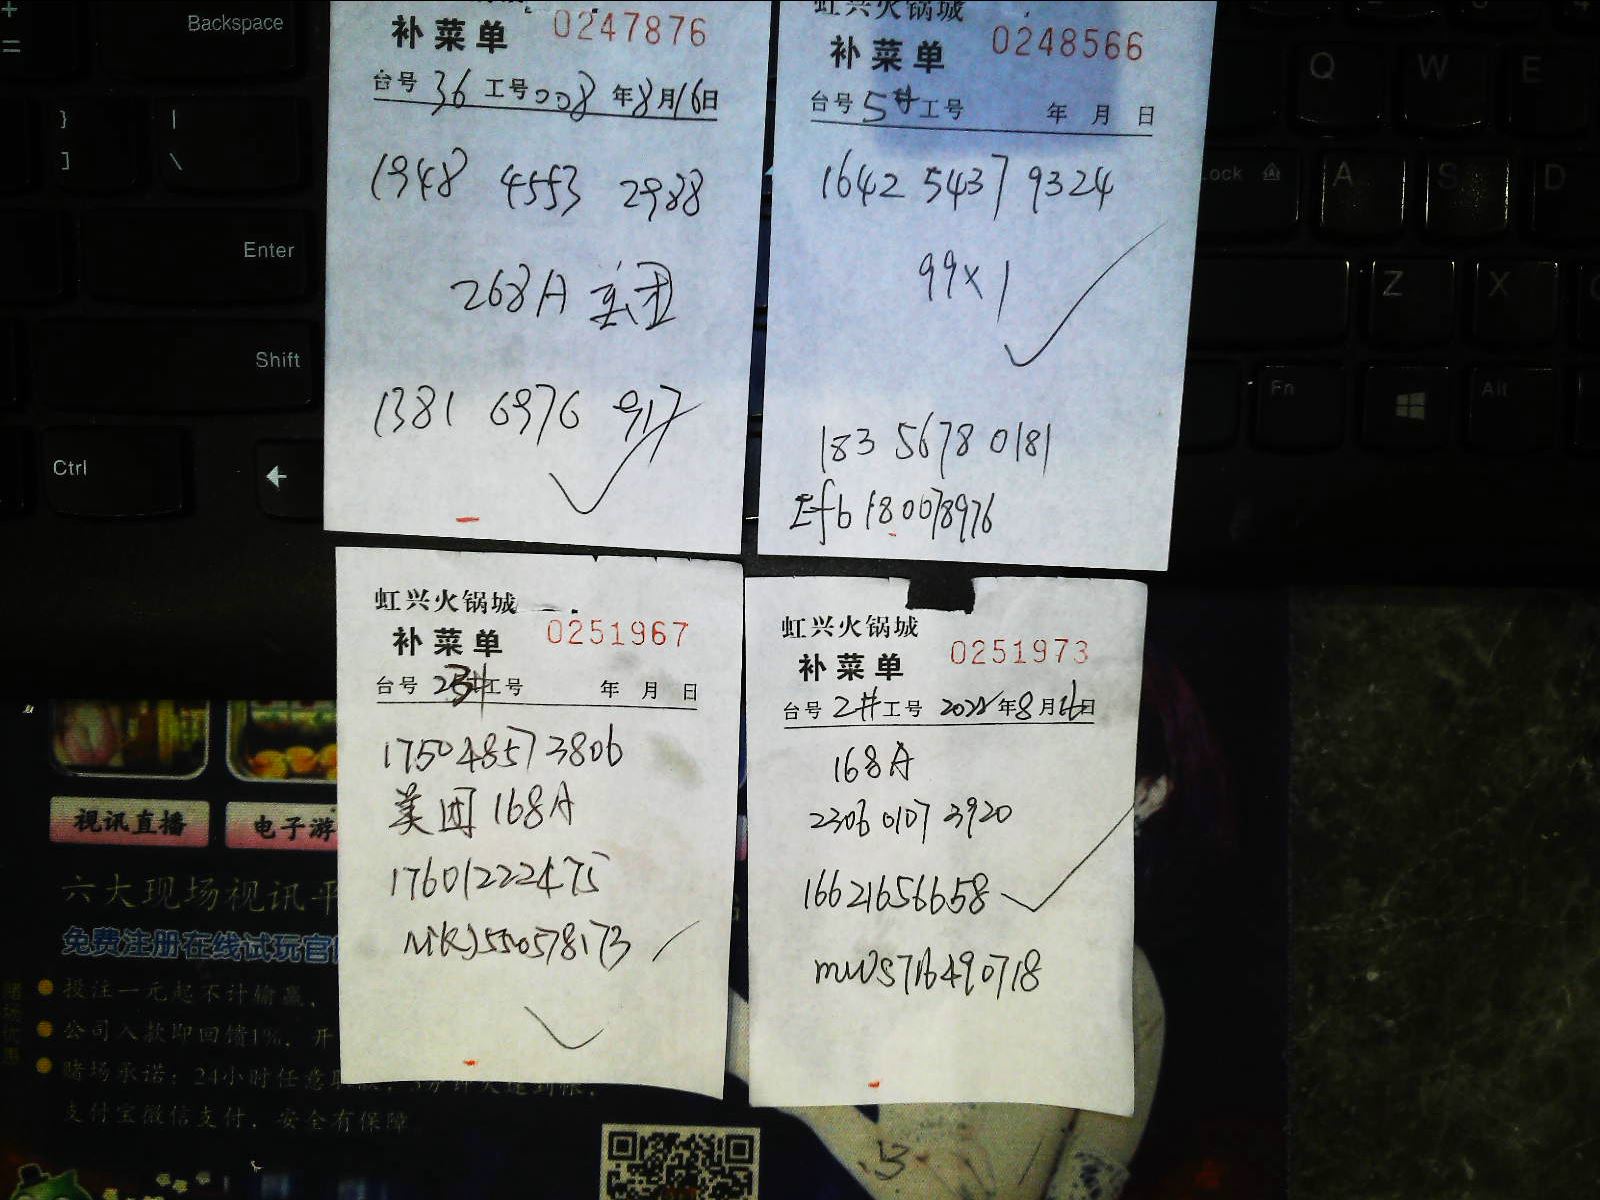 Backspace
Enter
Shift
Ctrl
Q W E
Lock A S D
Z X
Fn Alt
补菜单 0247876
台号 36 工号 008 年 8 月 16 日
1948 4553 2988
268A 美团
1381 6976 917
虹兴火锅城
补菜单 0248566
台号 5# 工号 年 月 日
1642 5437 9324
99x1
183 5678 0181
虹兴火锅城
补菜单 0251967
台号 工号 年 月 日
17504857 3806
美团 168A
17601222475
虹兴火锅城
补菜单 0251973
台号 2# 工号 年 8 月 16 日
168A
2306 0107 3920
16621656658
mWS716490718
视讯直播
电子游
六大现场视讯平
免费注册在线试玩官
投注一元起不计输赢，
公司入款即回馈1%，开
赌场承诺：24小时任意
支付宝微信支付，安全有保障